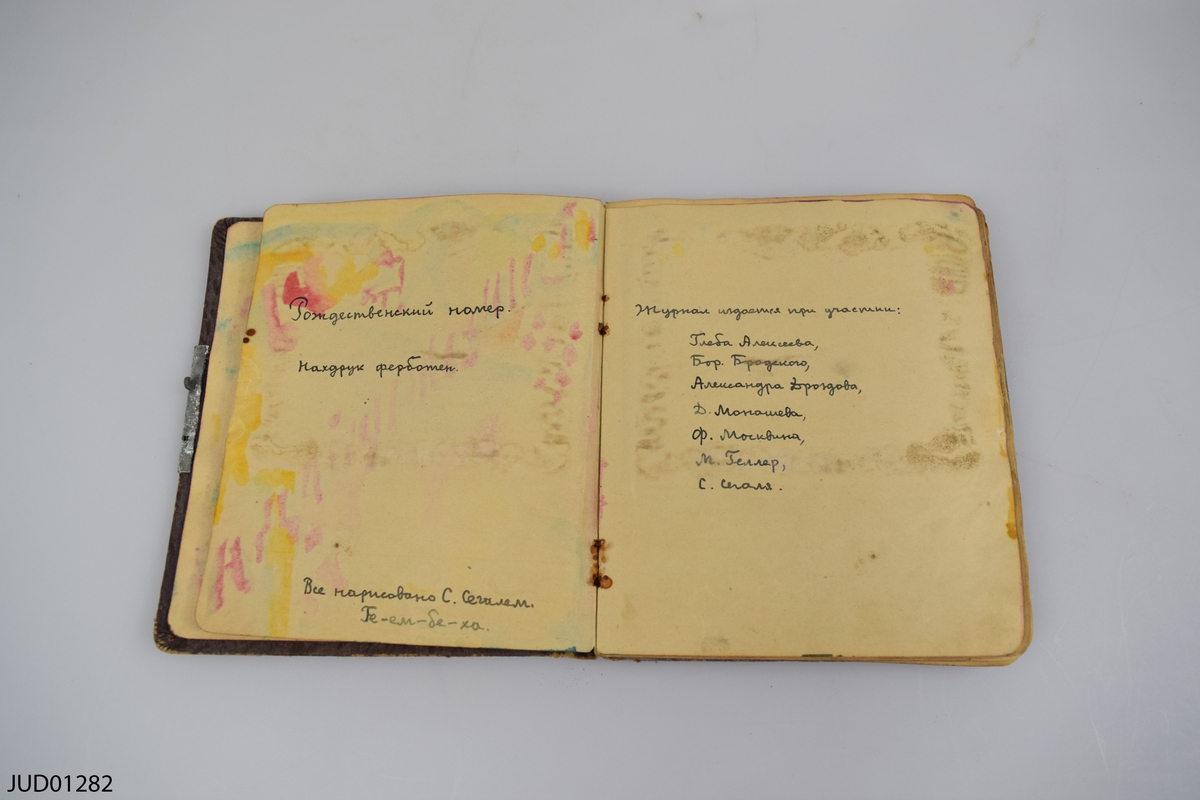 Рождественский номер.
Нахдрук ферботен.
Все нарисовано С. Сегалем.
Ге-ем-бе-ха.
Журнал издается при участии:
Глеба Алексеева,
Бор. Бродского,
Александра Дроздова,
Д. Монашева,
Ф. Москвина,
М. Геллер,
С. Сегаля.
JUD01282